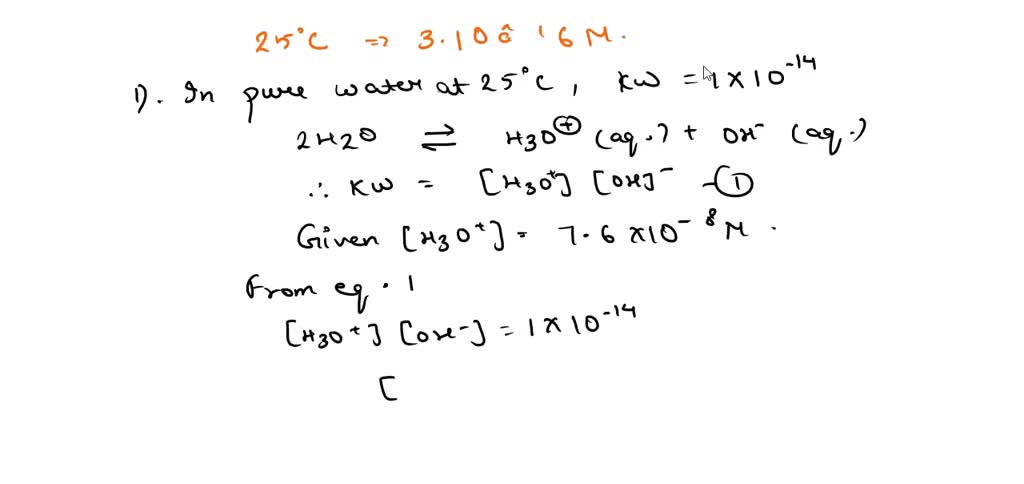 25°C => 3.10 â ' 6 M.
1). In pure water at 25°C, Kw = 1 x 10⁻¹⁴
2H2O ⇌ H3O⊕ (aq.) + OH⁻ (aq.)
∴ Kw = [H3O⁺] [OH]⁻ -①
Given [H3O⁺] = 7.6 x10⁻⁸ M.
From eq. 1
[H3O⁺] [OH⁻] = 1 x 10⁻¹⁴
[